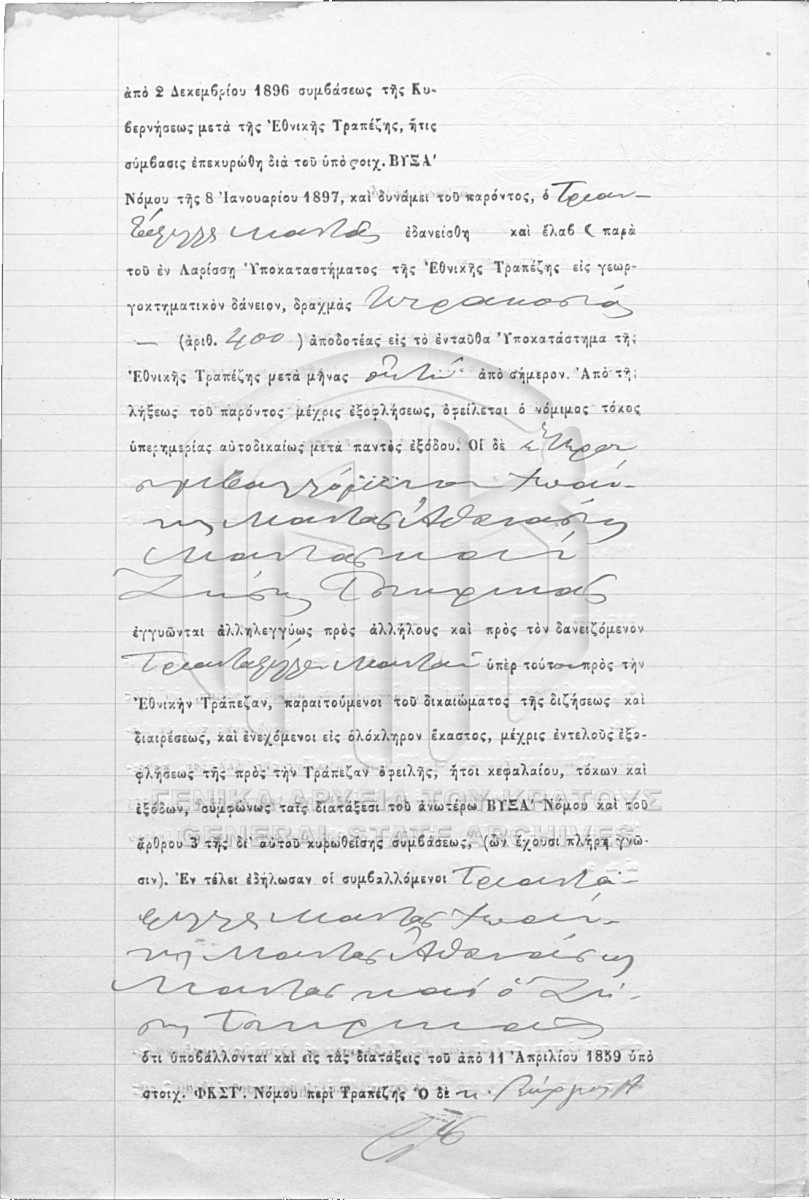 ἀπὸ 2 Δεκεμβρίου 1896 συμβάσεως τῆς Κυ-
βερνήσεως μετὰ τῆς Ἐθνικῆς Τραπέζης, ἥτις
σύμβασις ἐπεκυρώθη διὰ τοῦ ὑπὸ στοιχ. ΒΥΞΑ′
Νόμου τῆς 8 Ἰανουαρίου 1897, καὶ δυνάμει τοῦ παρόντος, ὁ Τριαν-
τάφυλλος Μαντᾶς ἐδανείσθη καὶ ἔλαβε παρὰ
τοῦ ἐν Λαρίσσῃ Ὑποκαταστήματος τῆς Ἐθνικῆς Τραπέζης εἰς γεωρ-
γοκτηματικὸν δάνειον, δραχμὰς τετρακοσίας
— (ἀριθ. 400 ) ἀποδοτέας εἰς τὸ ἐνταῦθα Ὑποκατάστημα τῆς
Ἐθνικῆς Τραπέζης μετὰ μῆνας ὀκτώ ἀπὸ σήμερον. Ἀπὸ τῆς
λήξεως τοῦ παρόντος μέχρις ἐξοφλήσεως, ὀφείλεται ὁ νόμιμος τόκος
ὑπερημερίας αὐτοδικαίως μετὰ παντὸς ἐξόδου. Οἱ δὲ ἕτεροι
συμβαλλόμενοι
Μαντας Ἀθανάσιος
Μαντας καὶ
Ζήσης
ἐγγυῶνται ἀλληλεγγύως πρὸς ἀλλήλους καὶ πρὸς τὸν δανειζόμενον
Τριαντάφυλλον Μανταν ὑπὲρ τούτου πρὸς τὴν
Ἐθνικὴν Τράπεζαν, παραιτούμενοι τοῦ δικαιώματος τῆς διζήσεως καὶ
διαιρέσεως, καὶ ἐνεχόμενοι εἰς ὁλόκληρον ἕκαστος, μέχρις ἐντελοῦς ἐξο-
φλήσεως τῆς πρὸς τὴν Τράπεζαν ὀφειλῆς, ἤτοι κεφαλαίου, τόκων καὶ
ΓΕΝΙΚΑ ΑΡΧΕΙΑ ΤΟΥ ΚΡΑΤΟΥΣ
ἐξόδων, συμφώνως ταῖς διατάξεσι τοῦ ἀνωτέρω ΒΥΞΑ′ Νόμου καὶ τοῦ
GENERAL STATE ARCHIVES
ἄρθρου 3 τῆς δι' αὐτοῦ κυρωθείσης συμβάσεως, (ὧν ἔχουσι πλήρη γνῶ-
σιν). Ἐν τέλει ἐδήλωσαν οἱ συμβαλλόμενοι Τριαντά-
φυλλος Μαντας
Μαντας Ἀθανάσιος
Μαντας καὶ ὁ Ζή-
σης
ὅτι ὑποβάλλονται καὶ εἰς τὰς διατάξεις τοῦ ἀπὸ 11 Ἀπριλίου 1859 ὑπὸ
στοιχ. ΦΚΣΤ′. Νόμου περὶ Τραπέζης Ὁ δὲ κ.